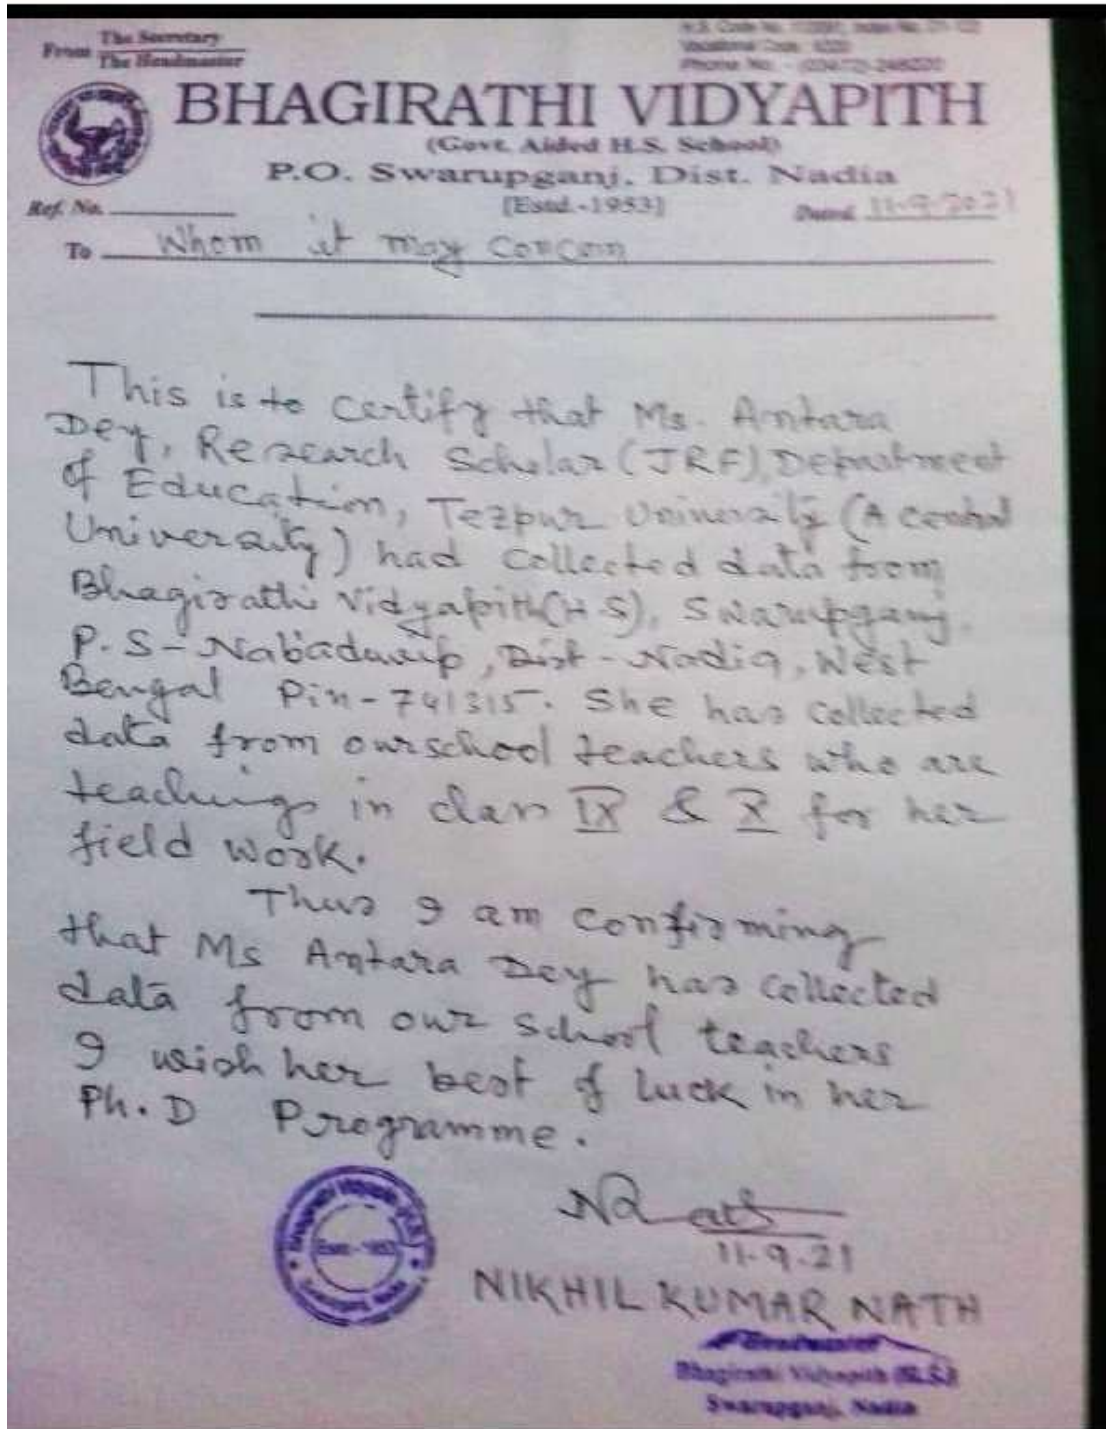 From The Secretary
The Headmaster
H.S. Code No.
Vocational Code
Phone No. - (03472)-248220
BHAGIRATHI VIDYAPITH
(Govt. Aided H.S. School)
P.O. Swarupganj, Dist. Nadia
Ref. No. [Estd.-1953] Dated 11-9-2021
To Whom it may concern
This is to certify that Ms. Antara
Dey, Research Scholar (JRF), Department
of Education, Tezpur University (A central
University) had collected data from
Bhagirathi Vidyapith(H.S), Swarupganj.
P.S-Nabadwip, Dist-Nadia, West
Bengal Pin-741315. She has collected
data from our school teachers who are
teachings in class IX & X for her
field work.
Thus I am confirming
that Ms Antara Dey has collected
data from our school teachers
I wish her best of luck in her
Ph.D Programme.
NKNath
11-9-21
NIKHIL KUMAR NATH
Headmaster
Bhagirathi Vidyapith (H.S.)
Swarupganj, Nadia
Estd-1953